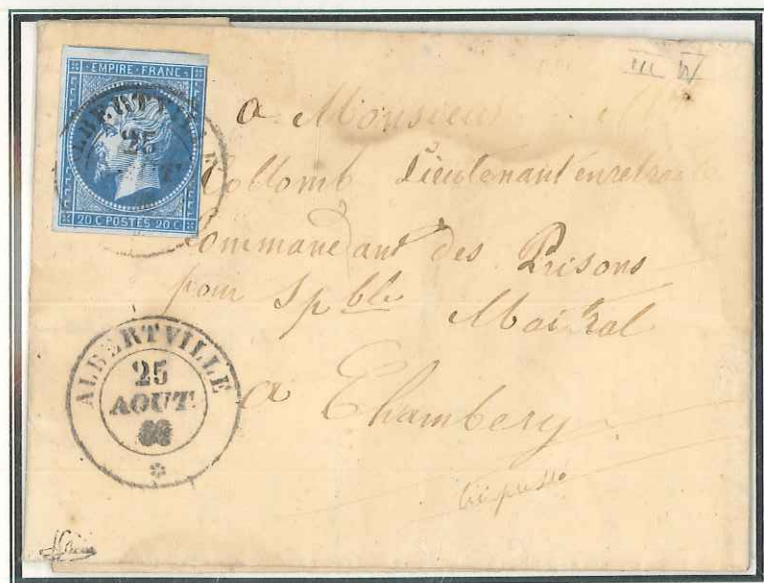 EMPIRE FRANC
20 C POSTES 20 C
ALBERTVILLE
25
a Monsieur
Collomb Lieutenant en retraite
Commandant des Prisons
pour Sp ble Mairal
a Chambery
ALBERTVILLE
25
AOUT